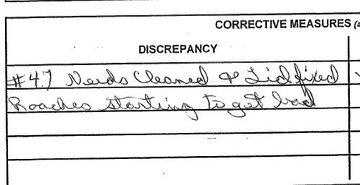 CORRECTIVE MEASURES
DISCREPANCY
#47 Needs Cleaned & Lid fixed
Roaches starting to get bad